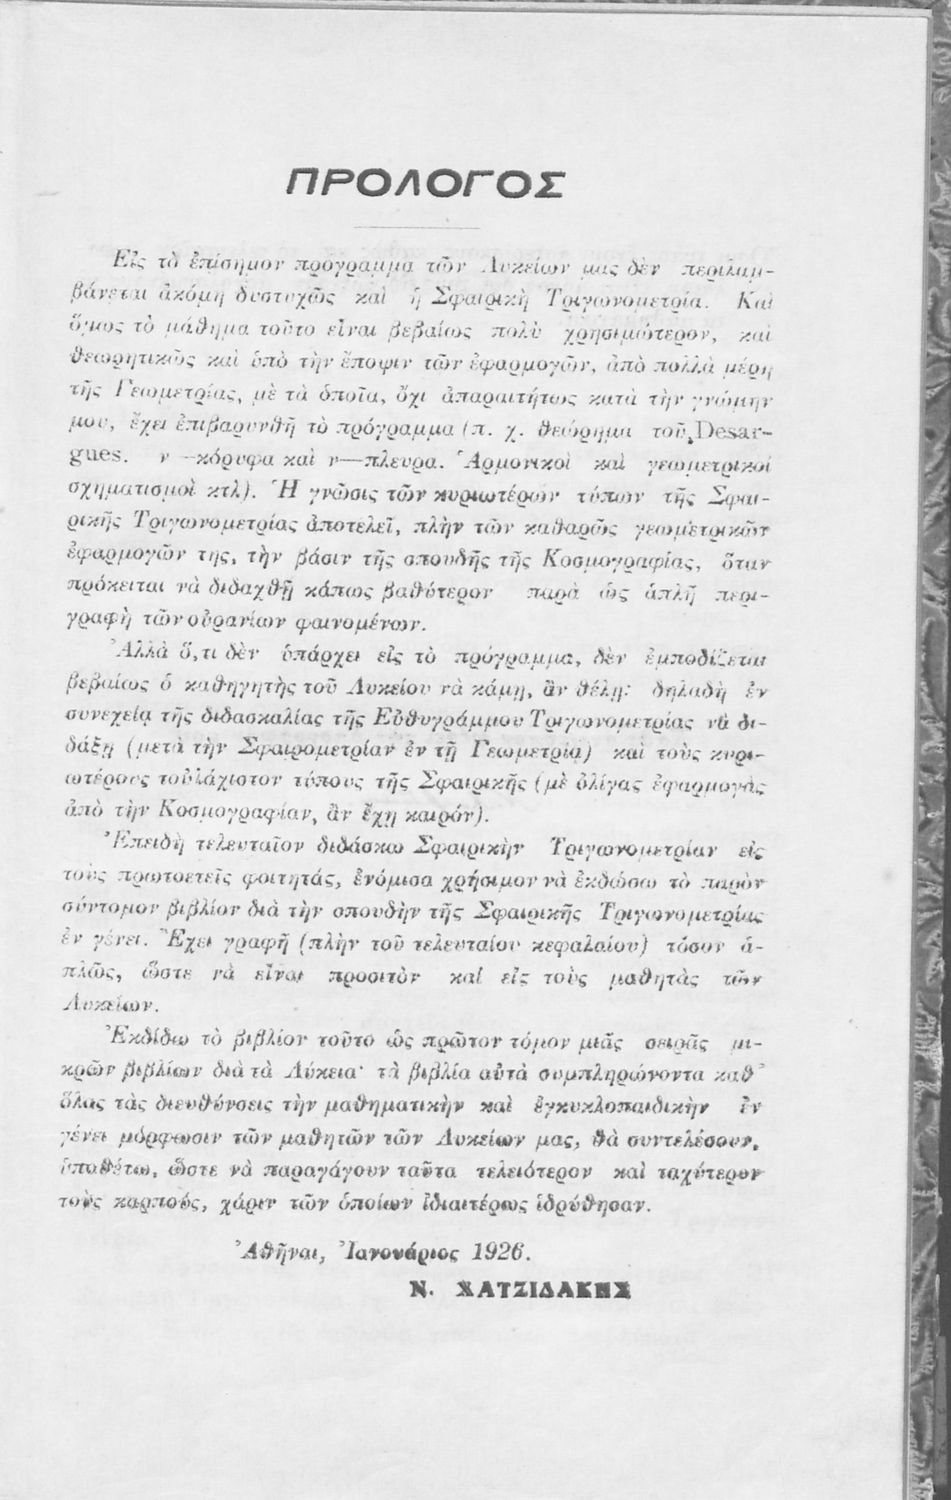 ΠΡΟΛΟΓΟΣ
Εἰς τὸ ἐπίσημον πρόγραμμα τῶν Λυκείων μας δὲν περιλαμ-
βάνεται ἀκόμη δυστυχῶς καὶ ἡ Σφαιρικὴ Τριγωνομετρία. Καὶ
ὅμως τὸ μάθημα τοῦτο εἶναι βεβαίως πολὺ χρησιμώτερον, καὶ
θεωρητικῶς καὶ ὑπὸ τὴν ἔποψιν τῶν ἐφαρμογῶν, ἀπὸ πολλὰ μέρη
τῆς Γεωμετρίας, μὲ τὰ ὁποῖα, ὄχι ἀπαραιτήτως κατὰ τὴν γνώμην
μου, ἔχει ἐπιβαρυνθῆ τὸ πρόγραμμα (π. χ. θεώρημα τοῦ Desar-
gues. ν —κόρυφα καὶ ν—πλευρα. Ἁρμονικοὶ καὶ γεωμετρικοὶ
σχηματισμοὶ κτλ). Ἡ γνῶσις τῶν κυριωτέρων τύπων τῆς Σφαι-
ρικῆς Τριγωνομετρίας ἀποτελεῖ, πλὴν τῶν καθαρῶς γεωμετρικῶν
ἐφαρμογῶν της, τὴν βάσιν τῆς σπουδῆς τῆς Κοσμογραφίας, ὅταν
πρόκειται νὰ διδαχθῇ κάπως βαθύτερον παρὰ ὡς ἁπλῆ περι-
γραφὴ τῶν οὐρανίων φαινομένων.
Ἀλλὰ ὅ,τι δὲν ὑπάρχει εἰς τὸ πρόγραμμα, δὲν ἐμποδίζεται
βεβαίως ὁ καθηγητὴς τοῦ Λυκείου νὰ κάμῃ, ἂν θέλῃ· δηλαδὴ ἐν
συνεχείᾳ τῆς διδασκαλίας τῆς Εὐθυγράμμου Τριγωνομετρίας νὰ δι-
δάξῃ (μετὰ τὴν Σφαιρομετρίαν ἐν τῇ Γεωμετρίᾳ) καὶ τοὺς κυρι-
ωτέρους τοὐλάχιστον τύπους τῆς Σφαιρικῆς (μὲ ὀλίγας ἐφαρμογὰς
ἀπὸ τὴν Κοσμογραφίαν, ἂν ἔχῃ καιρόν).
Ἐπειδὴ τελευταῖον διδάσκω Σφαιρικὴν Τριγωνομετρίαν εἰς
τοὺς πρωτοετεῖς φοιτητάς, ἐνόμισα χρήσιμον νὰ ἐκδώσω τὸ παρὸν
σύντομον βιβλίον διὰ τὴν σπουδὴν τῆς Σφαιρικῆς Τριγωνομετρίας
ἐν γένει. Ἔχει γραφῆ (πλὴν τοῦ τελευταίου κεφαλαίου) τόσον ἁ-
πλῶς, ὥστε νὰ εἶναι προσιτὸν καὶ εἰς τοὺς μαθητὰς τῶν
Λυκείων.
Ἐκδίδω τὸ βιβλίον τοῦτο ὡς πρῶτον τόμον μιᾶς σειρᾶς μι-
κρῶν βιβλίων διὰ τὰ Λύκεια· τὰ βιβλία αὐτὰ συμπληρώνοντα καθ᾿
ὅλας τὰς διευθύνσεις τὴν μαθηματικὴν καὶ ἐγκυκλοπαιδικὴν ἐν
γένει μόρφωσιν τῶν μαθητῶν τῶν Λυκείων μας, θὰ συντελέσουν,
ὑποθέτω, ὥστε νὰ παραγάγουν ταῦτα τελειότερον καὶ ταχύτερον
τοὺς καρπούς, χάριν τῶν ὁποίων ἰδιαιτέρως ἱδρύθησαν.
Ἀθῆναι, Ἰανουάριος 1926.
Ν. ΧΑΤΖΙΔΑΚΗΣ